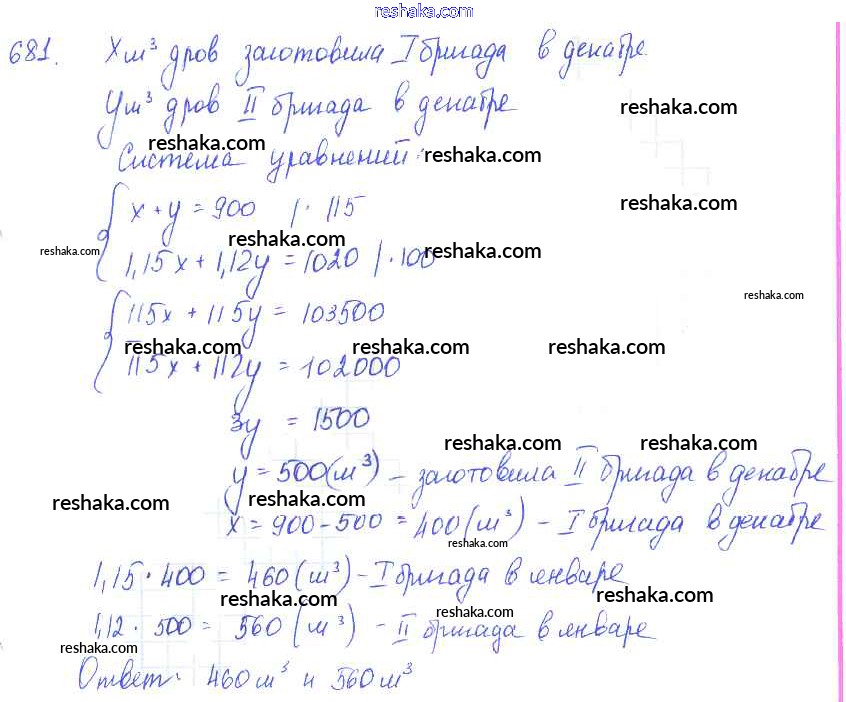 reshaka.com
681. Xм³ дров заготовила I бригада в декабре
Yм³ дров II бригада в декабре
reshaka.com
reshaka.com
Система уравнений:
reshaka.com
x + y = 900 | · 115
reshaka.com
reshaka.com
reshaka.com
1,15x + 1,12y = 1020 | · 100
reshaka.com
reshaka.com
115x + 115y = 103500
reshaka.com
reshaka.com
reshaka.com
115x + 112y = 102000
3y = 1500
reshaka.com
reshaka.com
y = 500(м³) – заготовила II бригада в декабре
reshaka.com
reshaka.com
x = 900 - 500 = 400(м³) – I бригада в декабре
reshaka.com
1,15 · 400 = 460(м³) – I бригада в январе
reshaka.com
reshaka.com
reshaka.com
1,12 · 500 = 560(м³) – II бригада в январе
reshaka.com
Ответ: 460м³ и 560м³